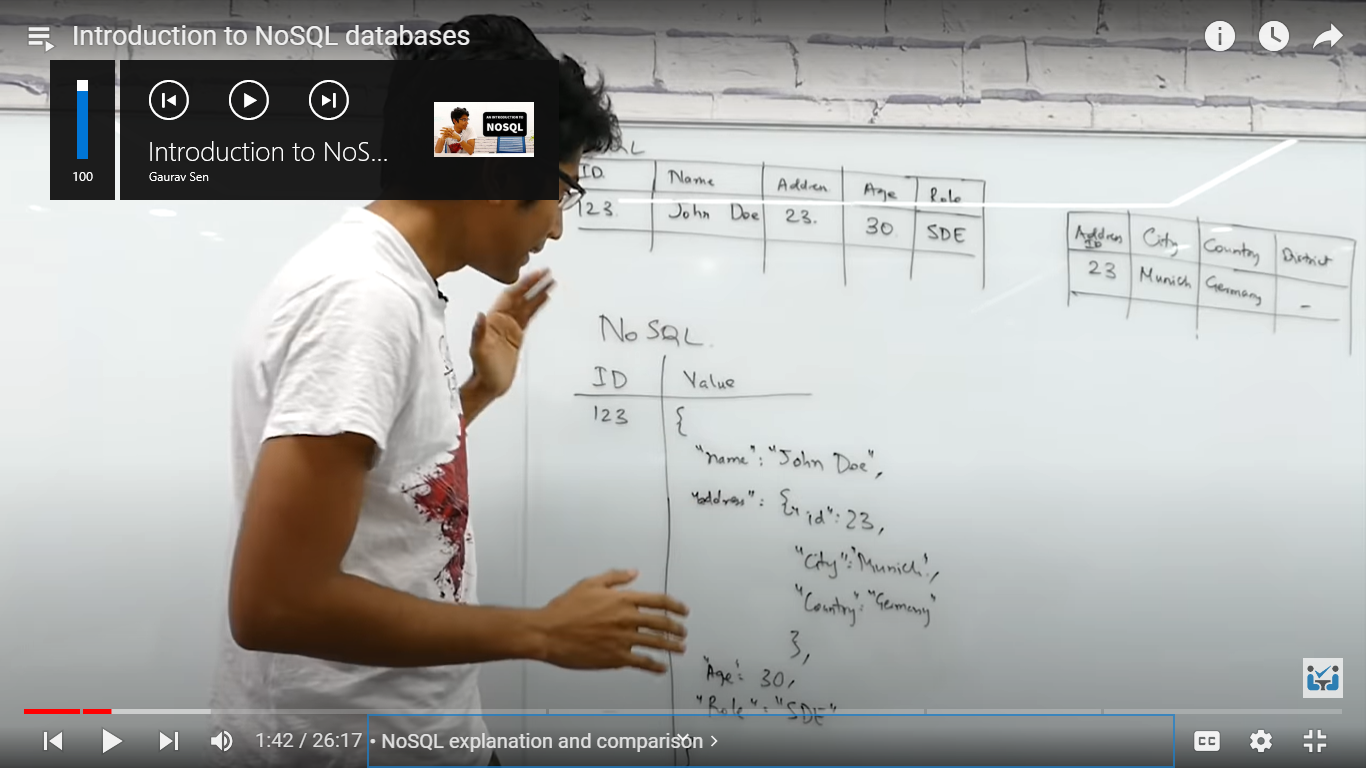 Introduction to NoSQL databases
100
Introduction to NoS...
Gaurav Sen
AN INTRODUCTION TO
NOSQL
QL
ID Name Addren Age Role
123. John Doe 23. 30. SDE
Addren ID City Country District
23 Munich Germany -
NoSQL.
ID Value
123 {
"name": "John Doe",
"address": {"id": 23,
"City": "Munich",
"Country": "Germany"
},
"Age": 30,
"Role": "SDE"
}
1:42 / 26:17 • NoSQL explanation and comparison >
CC